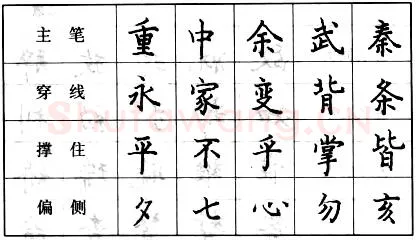 主笔 重 中 余 武 秦
穿线 永 家 变 背 条
撑住 平 不 乎 掌 皆
偏侧 夕 七 心 勿 亥
Shufawang.CN